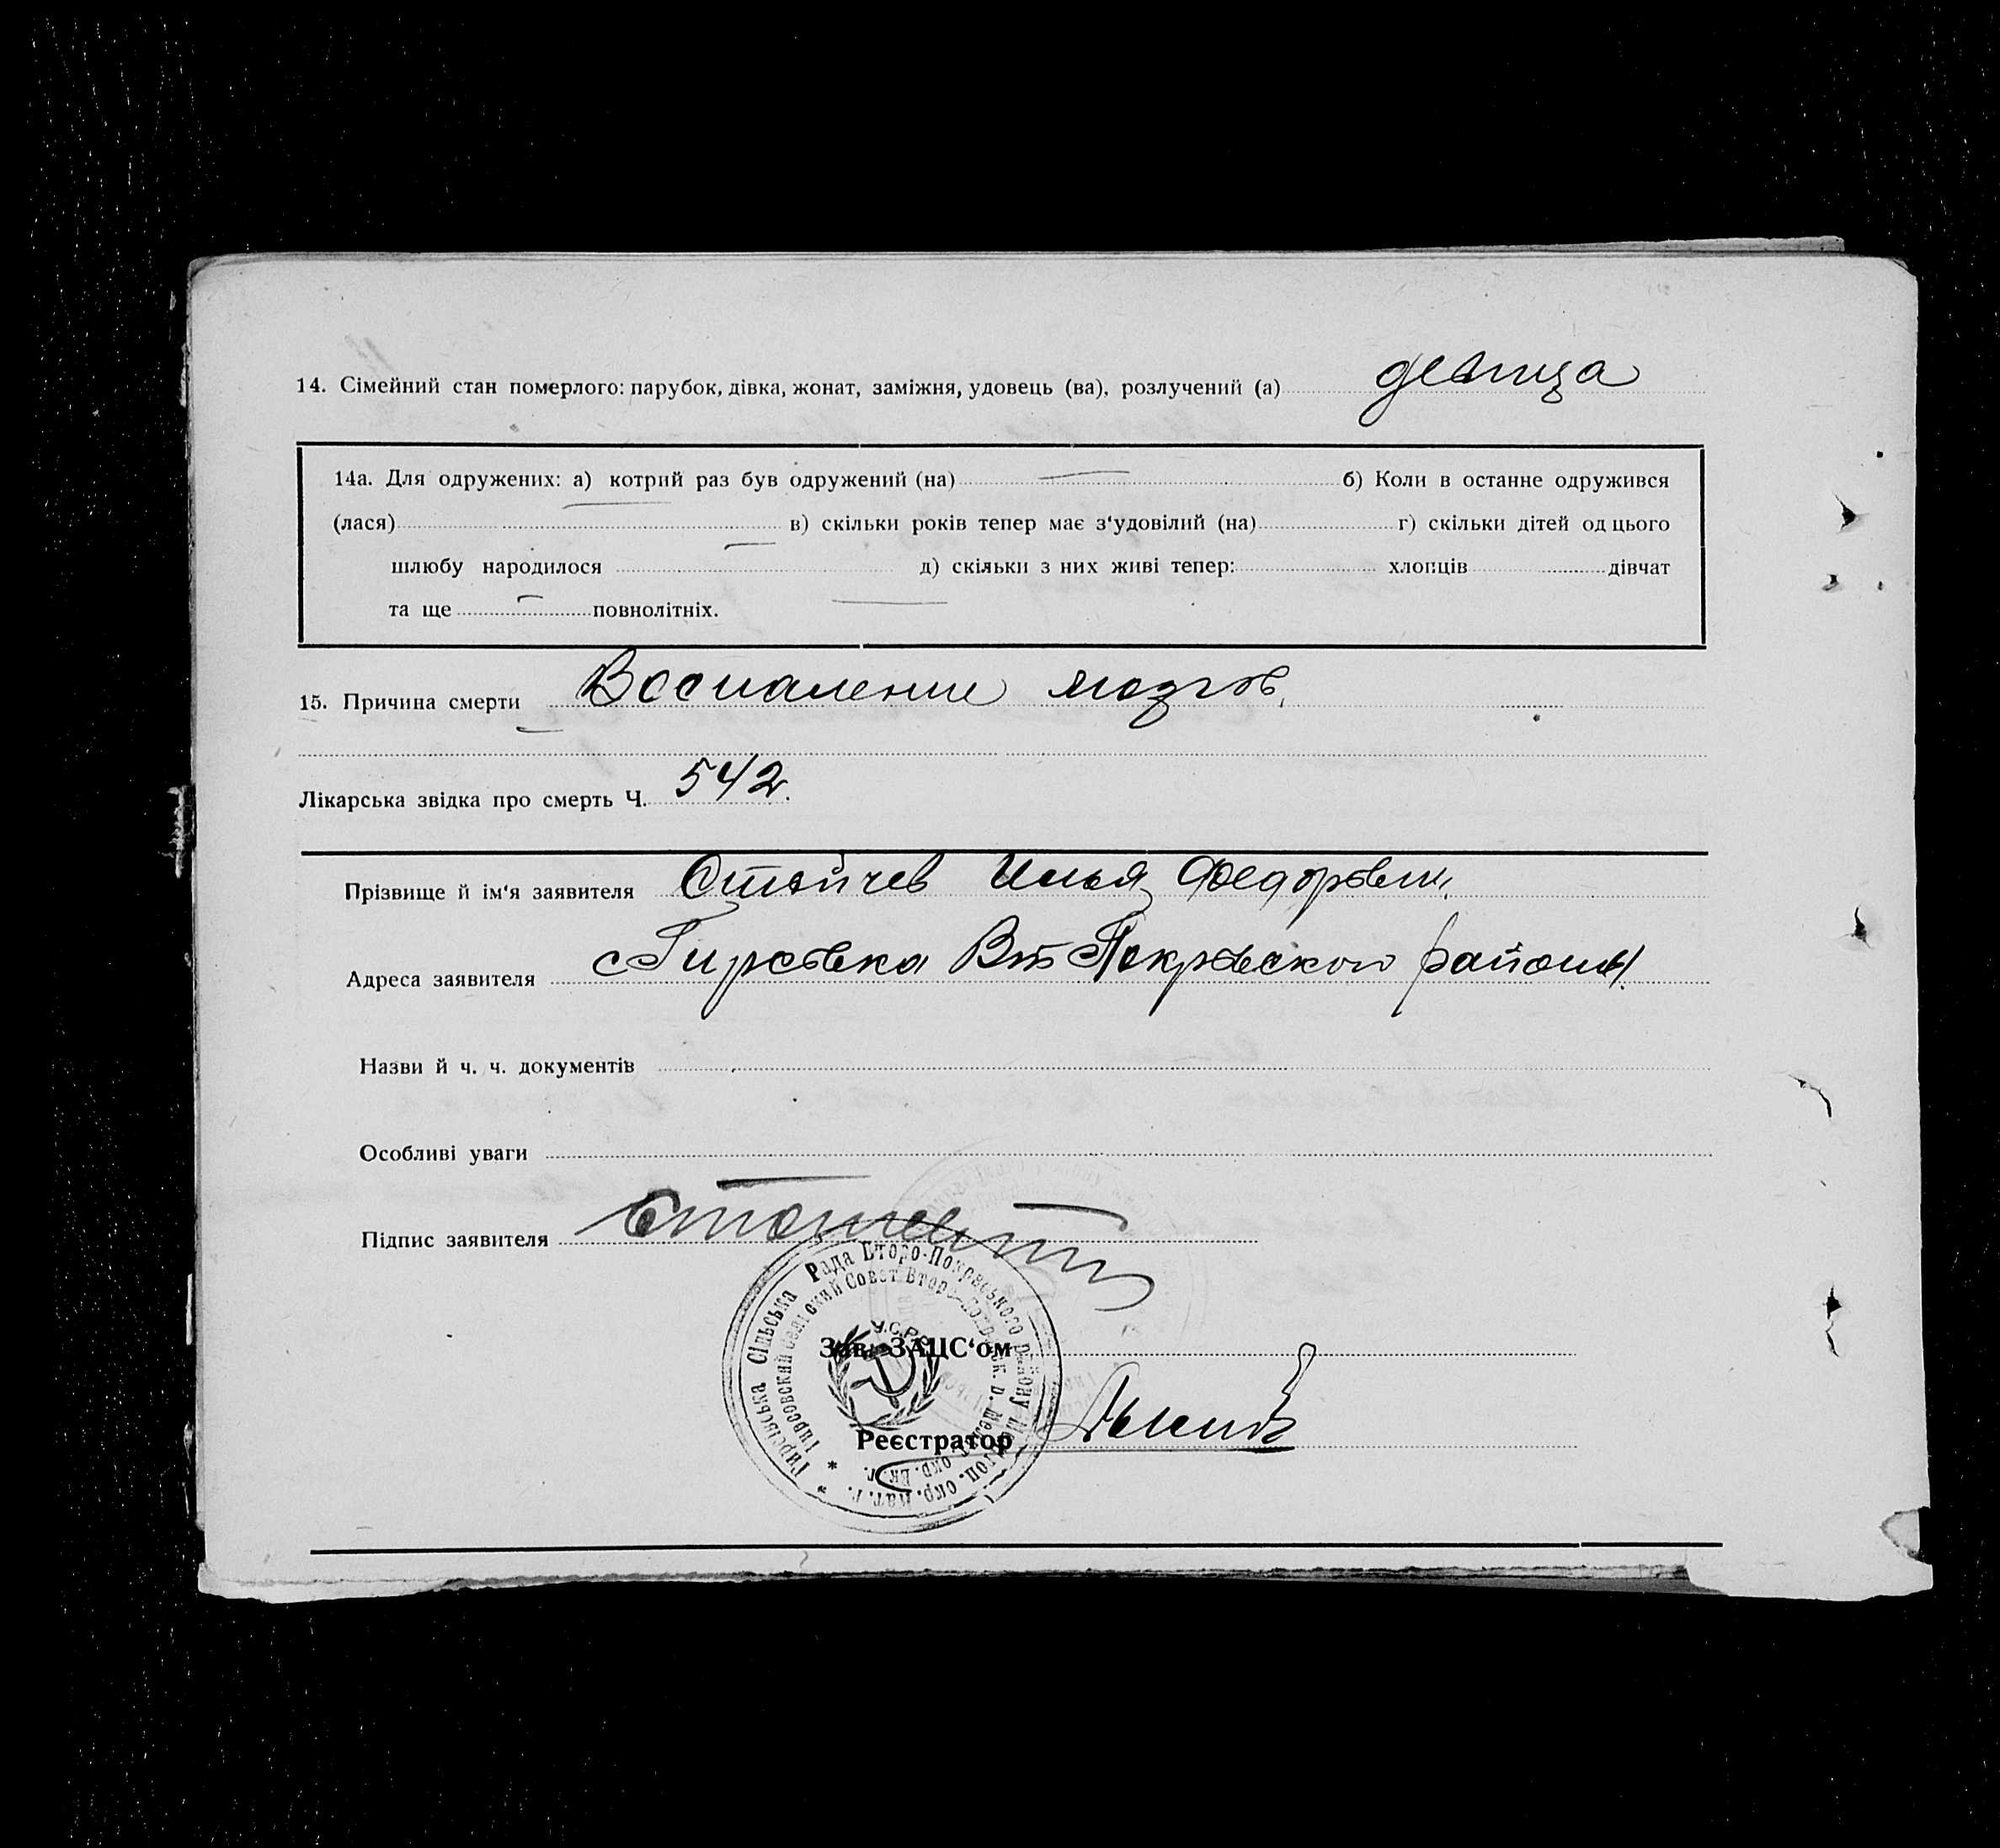 14. Сімейний стан померлого: парубок, дівка, жонат, заміжня, удовець (ва), розлучений (а) девица
14а. Для одружених: а) котрий раз був одружений (на) — б) Коли в останне одружився
(лася) — в) скільки років тепер має з‘удовілий (на) г) скільки дітей од цього
шлюбу народилося — д) скільки з них живі тепер: хлопців дівчат
та ще — повнолітніх. —
15. Причина смерти Воспаление мозгов.
Лікарська звідка про смерть Ч. 542.
Прізвище й ім‘я заявителя Стойчев Илья Федорович
Адреса заявителя с Гирсовка Вт Покровского района
Назви й ч. ч. документів
Особливі уваги
Підпис заявителя
Гирсівська Сільська Рада Второ-Покровського району Мелітоп. окр.
Гирсовский сельский Совет Второ-Покровск. р. Мелитоп. окр.
У.С.Р.Р.
Зав. ЗАЦС‘ом
Реєстратор